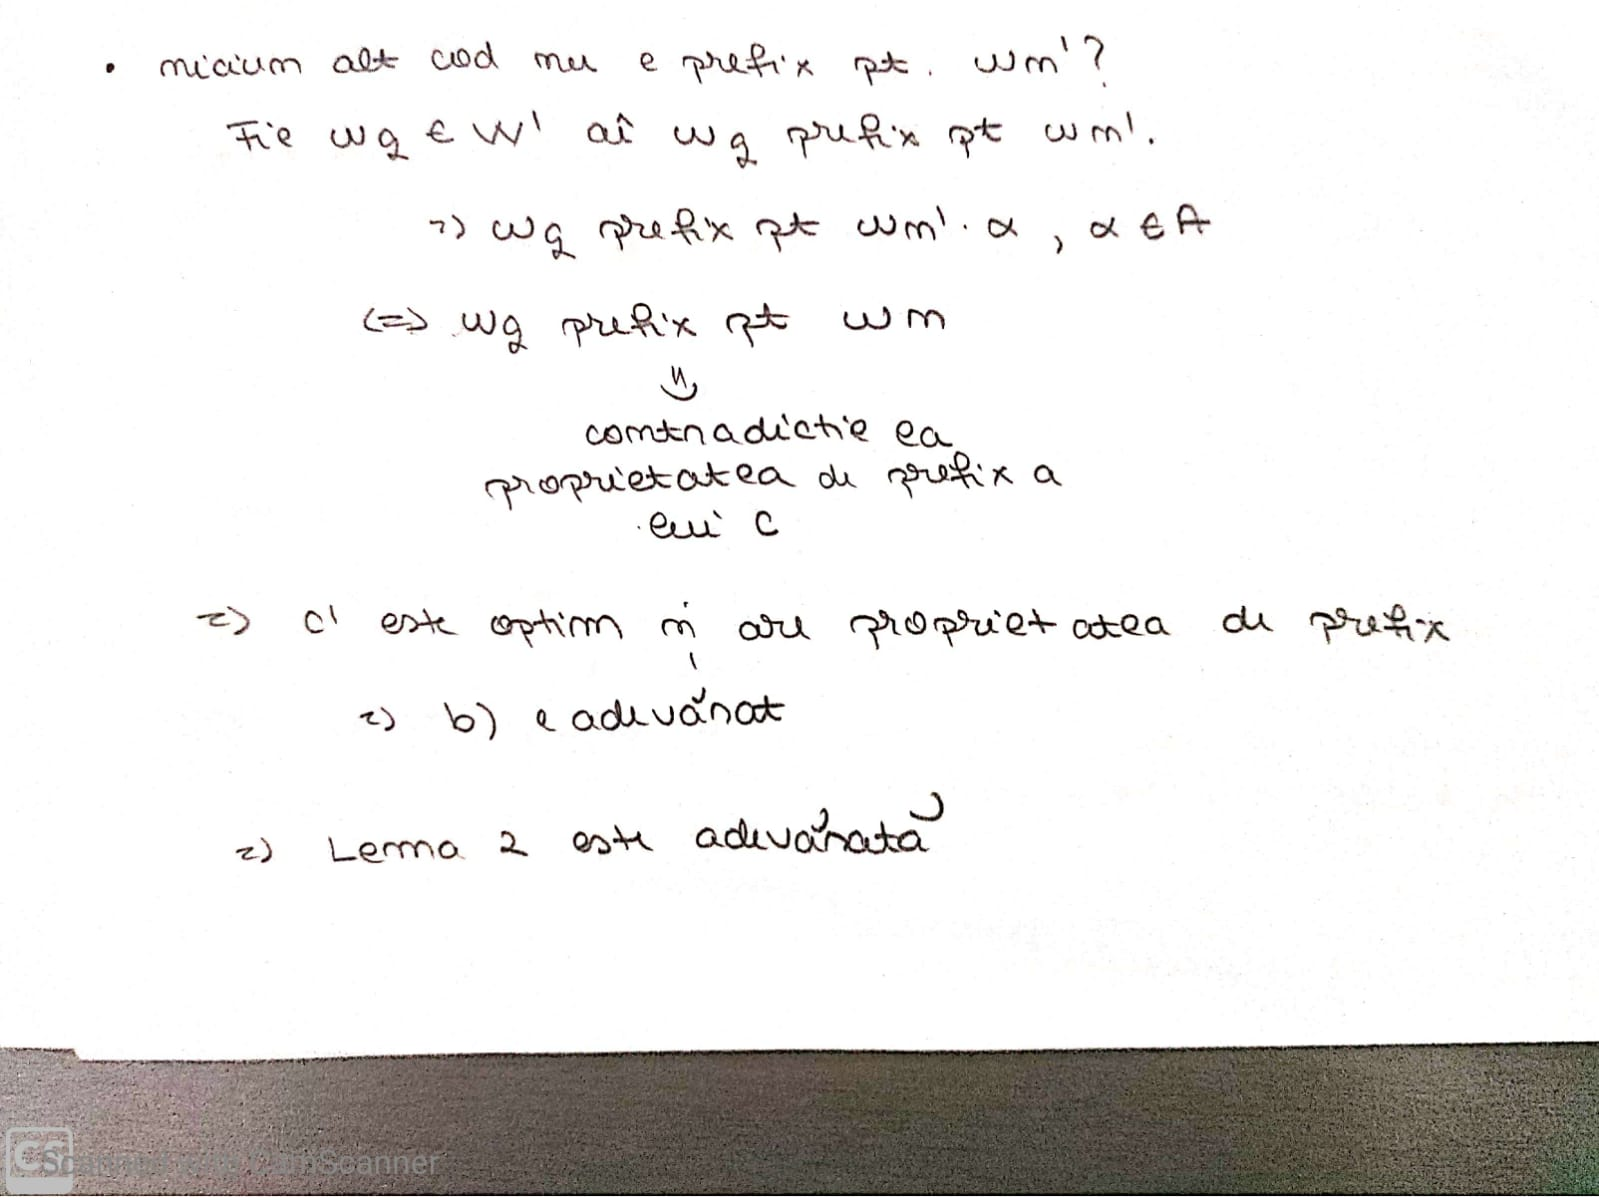 • niciun alt cod nu e prefix pt. wm'?
Fie wq ∈ W' aî wq prefix pt wm'.
=> wq prefix pt wm'. α , α ∈ A
<=> wq prefix pt wm
contradictie ca
proprietatea de prefix a
lui C
=> C' este optim și are proprietatea de prefix
=> b) e adevărat
=> Lema 2 este adevărată
CS Scanned with CamScanner